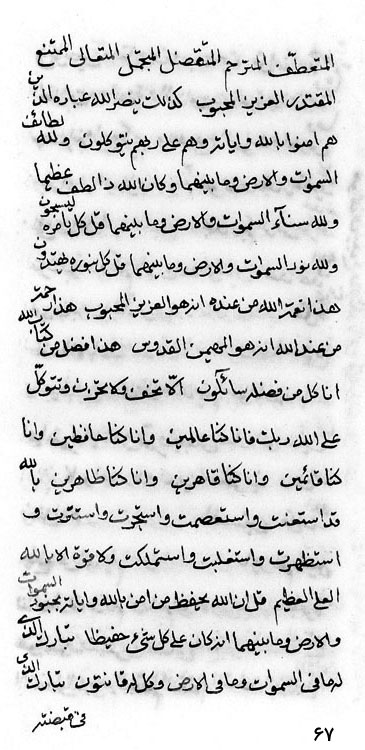 المتعطف المترحم المتفضل المجمل المتعالى الممتنع
المقتدر العزيز المحبوب كذلك ينصر الله عباده الذين
هم امنوا بالله واياته وهم على ربهم يتوكلون ولله لطائف
السموات والارض وما بينهما وكان الله ذا لطف عظيما
ولله سناء السموات والارض وما بينهما قل كل بامره ليسجدون
ولله نور السموات والارض وما بينهما قل كل بنوره يهتدون
هذا نعمة الله من عنده انه هو العزيز المحبوب هذا رحمة
من عند الله انه هو المهيمن القدوس هذا فضل من كتاب الله
انا كل من فضله سائلون الا تخف ولا تحزن وتوكل
على الله ربك فانا كنا عالمين وانا كنا حافظين وانا
كنا قائمين وانا كنا قاهرين وانا كنا ظاهرين بالله
قد استعنت واستعصمت واستجرت و
استظهرت واستغلبت واستملكت ولا قوة الا بالله
العلى العظيم قل ان الله يحفظ من امن بالله واياته السموات
والارض وما بينهما انه كان على كل شىء حفيظا تبارك الذى
له ما فى السموات وما فى الارض وكل له قانتون تبارك الذى
فى قبضته
٦٧